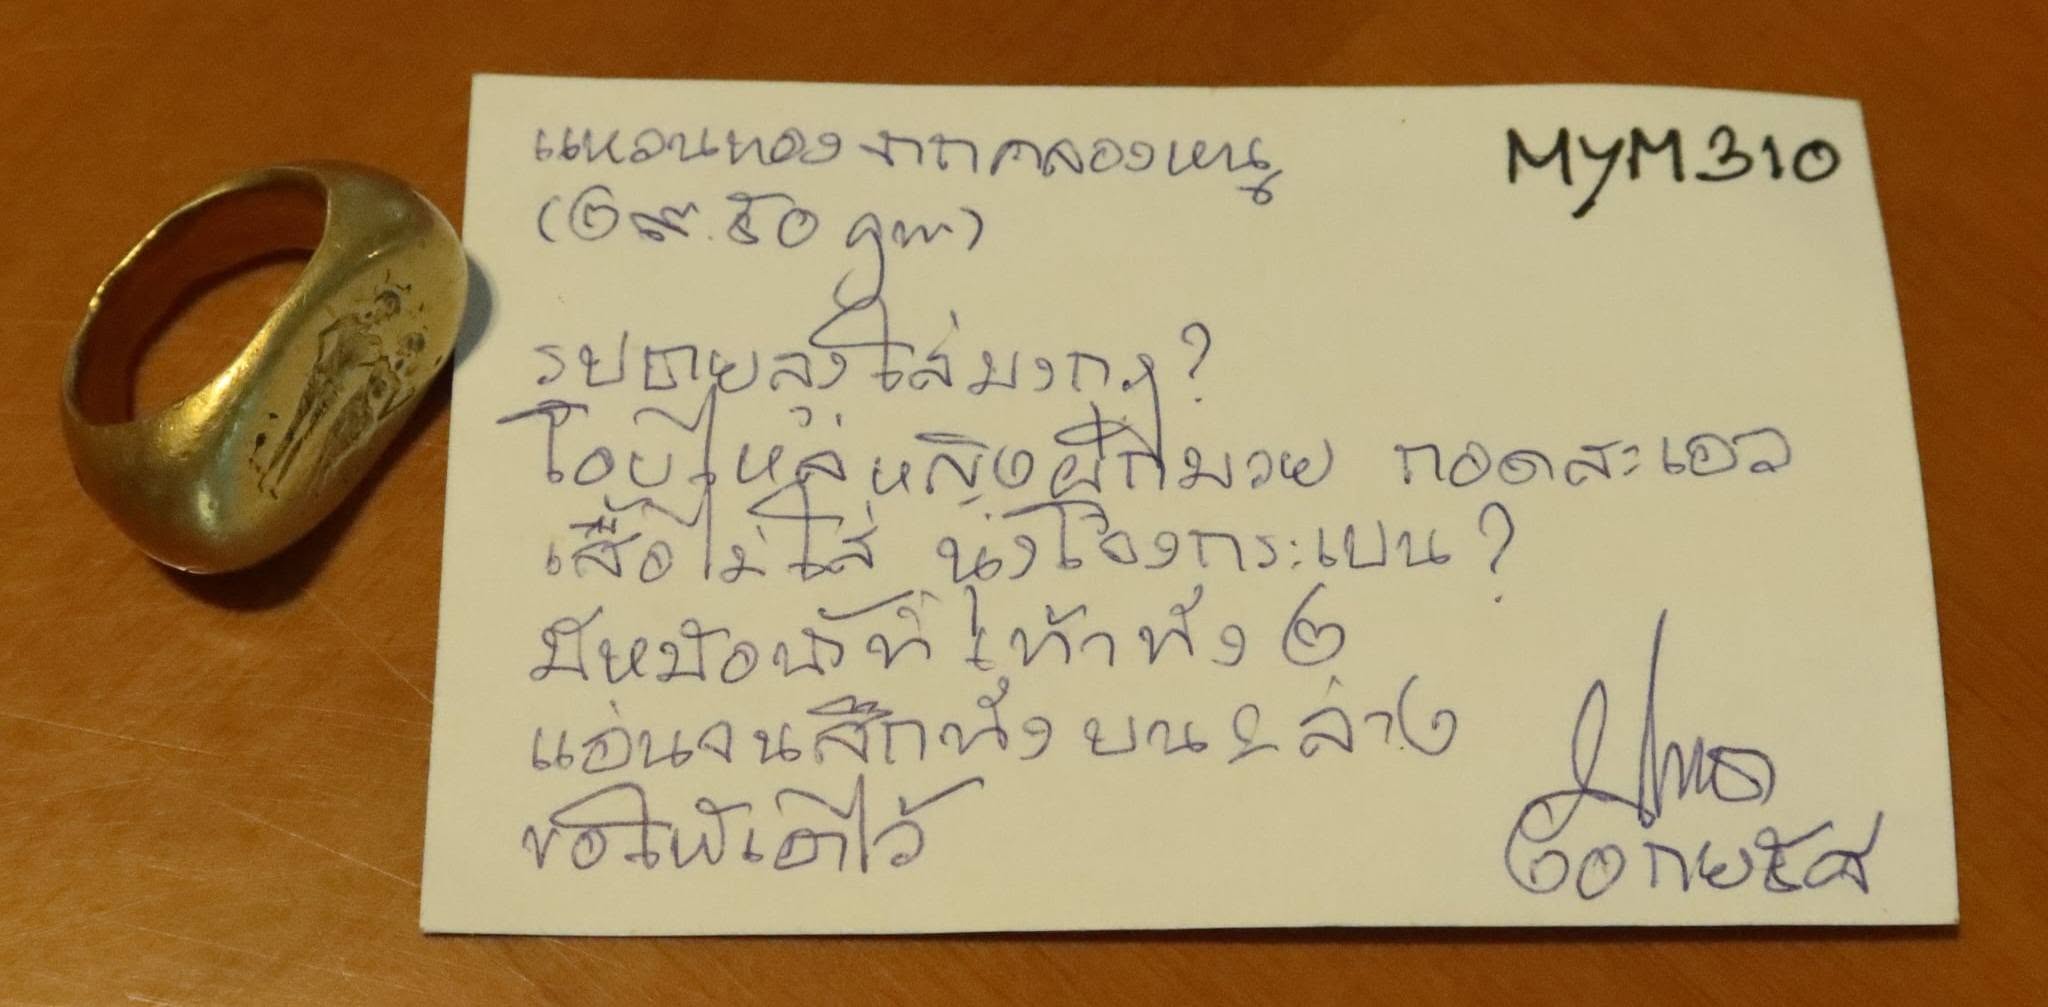 แหวนทองจากคลองหนู
MYM310
(๒๙.๕๐ gm)
รูปชายสูงใส่มงกุฎ?
โอบไหล่หญิงผู้ไม่มวย กอดสะเอว
เสื้อไม่ใส่ นุ่งโจงกระเบน?
มีหม้อน้ำที่เท้าทั้ง ๒
แอ่นจนสึกทั้งบน & ล่าง
ขอให้เอาไว้
๒๐ กย ๕๔